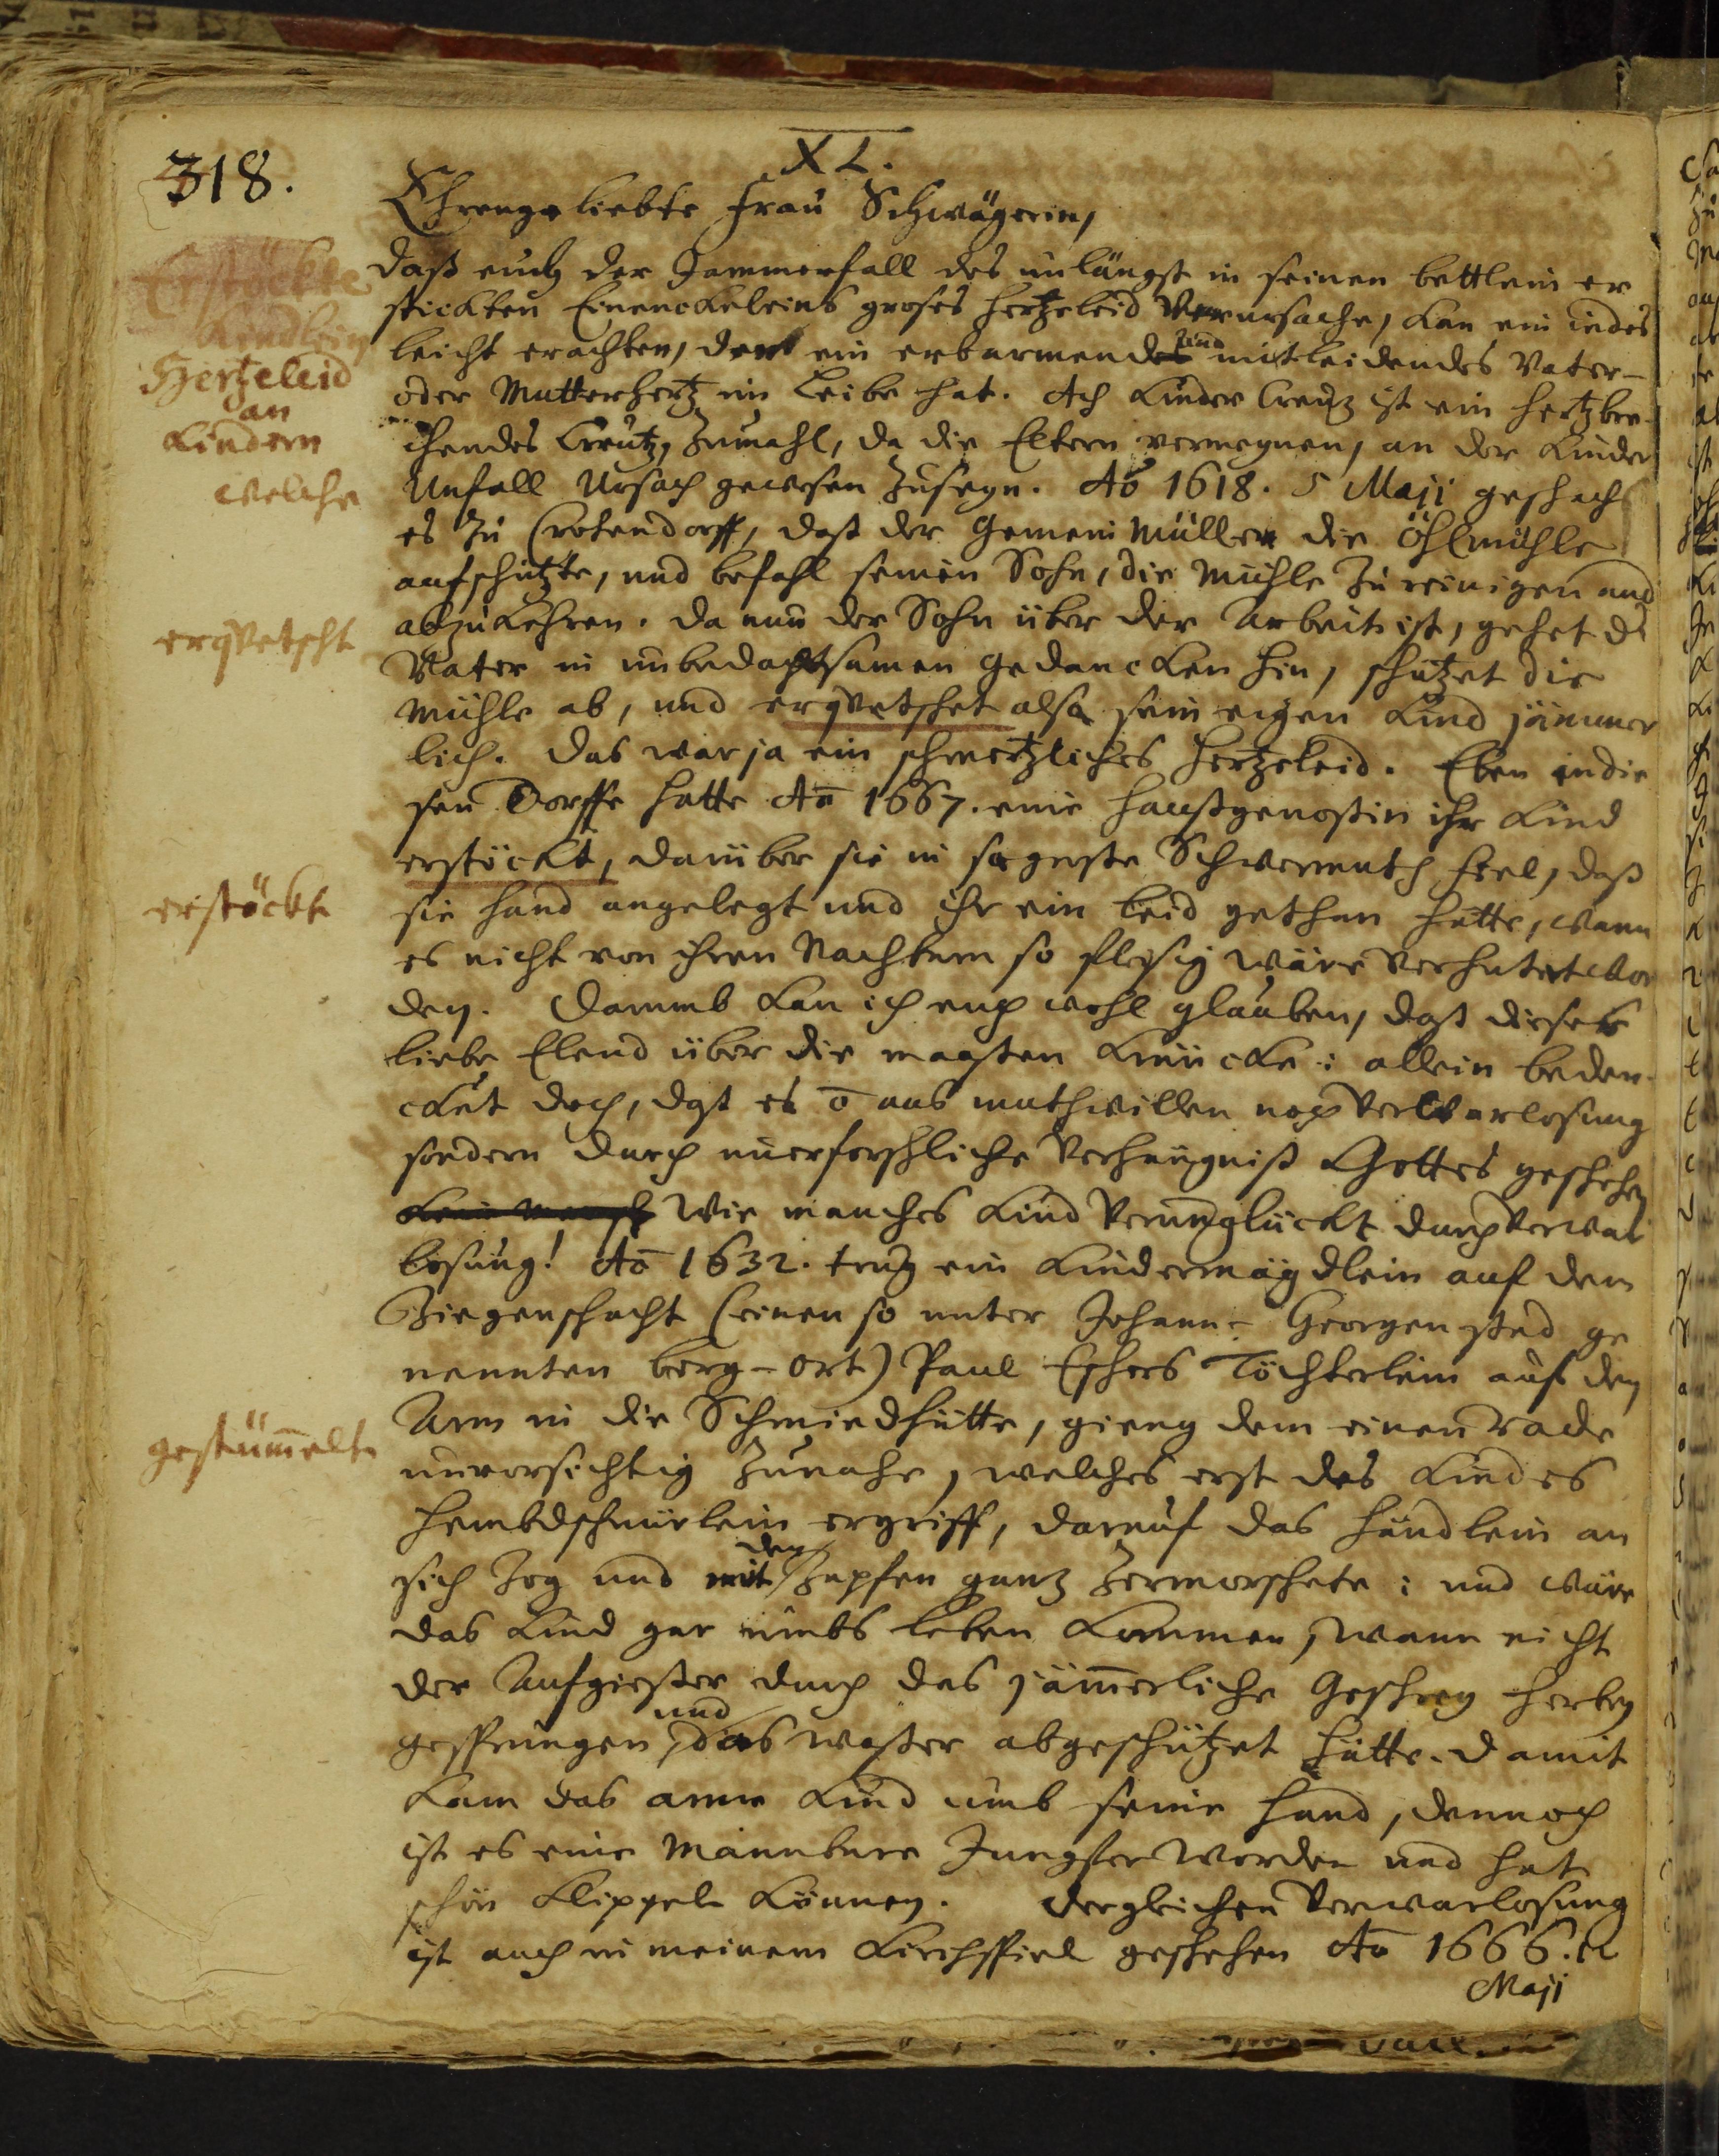 318.
XL.
Ehrengeliebte Frau Schwägerin,
Erstöckte
Kindlein
Hertzeleid
an
Kindern
welche
daß euch der Jammerfall des unlängst in seinen bettlein er
stickten Eineneckeleins groses hertzeleid Verursache, kan ein iedes
leicht erachten, der ein erbarmendes und mitleidendes Vater-
oder Mutterhertz im Leibe hat. Ach Kinder Creutz ist ein hertzbre-
chendes Creutz, zumahl, da die Eltern vermeynen, an der Kinder
Unfall Ursach gewesen zuseyn. Ao 1618. 5 Maji geschach
es zu Crotendorff, daß der Gemein Müller die Öhlmühle
aufschützte, und befahl seinen Sohn, die Mühle zu reinigen und
abzukehren. Da nun der Sohn über der Arbeit ist, gehet d
erqvetscht
Vater in unbedachtsamen gedancken hin, schützet die
Mühle ab, und erqvetschet also sein eigen Kind jämmer
lich. Das war ja ein schmertzliches Hertzeleid. Eben in die
sen Dorffe hatte Ao 1667. eine haußgenoßin ihr Kind
erstöckt, darüber sie in so groste Schwermuth fiel, daß
erstöckt
sie hand angelegt und ihr ein leid gethan hätte, wann
es nicht von ihren Nachbarn so fleisig wäre verhütet wor
den. Darumb kan ich euch wohl glauben, daß dieses
liebe Elend über die maasten krücke: allein beden-
cket doch, daß es o aus muthwillen noch Verwarlosung
sondern durch unerforschliche Verhängniß Gottes geschehen
Wie manches Kind Verunglückt durch Verwar
losung! Ao 1632. trug ein Kindermägdlein auf dem
Ziegenschacht (einen so unter Johann-Georgenstad ge
nennten berg-ort) Paul Eschers Töchterlein auf den
Arm in die Schmiedhütte, gieng dem einen rade
gestümmelt
unvorsichtig zunahe, welches erst des Kindes
hembdschnürlein ergriff, darauf das händlein an
sich zog und mit den Zapfen gantz zermorschete: und wäre
das Kind gar umbs leben kommen, wann nicht
der Aufgießer durch das jämerliche Geschrey herbey
gesprungen, und das waßer abgeschützet hätte. Damit
kam das arme Kind umb seine hand, dennoch
ist es eine Mannbare Jungfer worden und hat
schön klippeln können. Dergleichen Verwarlosung
ist auch in meinem Kirchspiel geschehen Ao 1666.
Maji